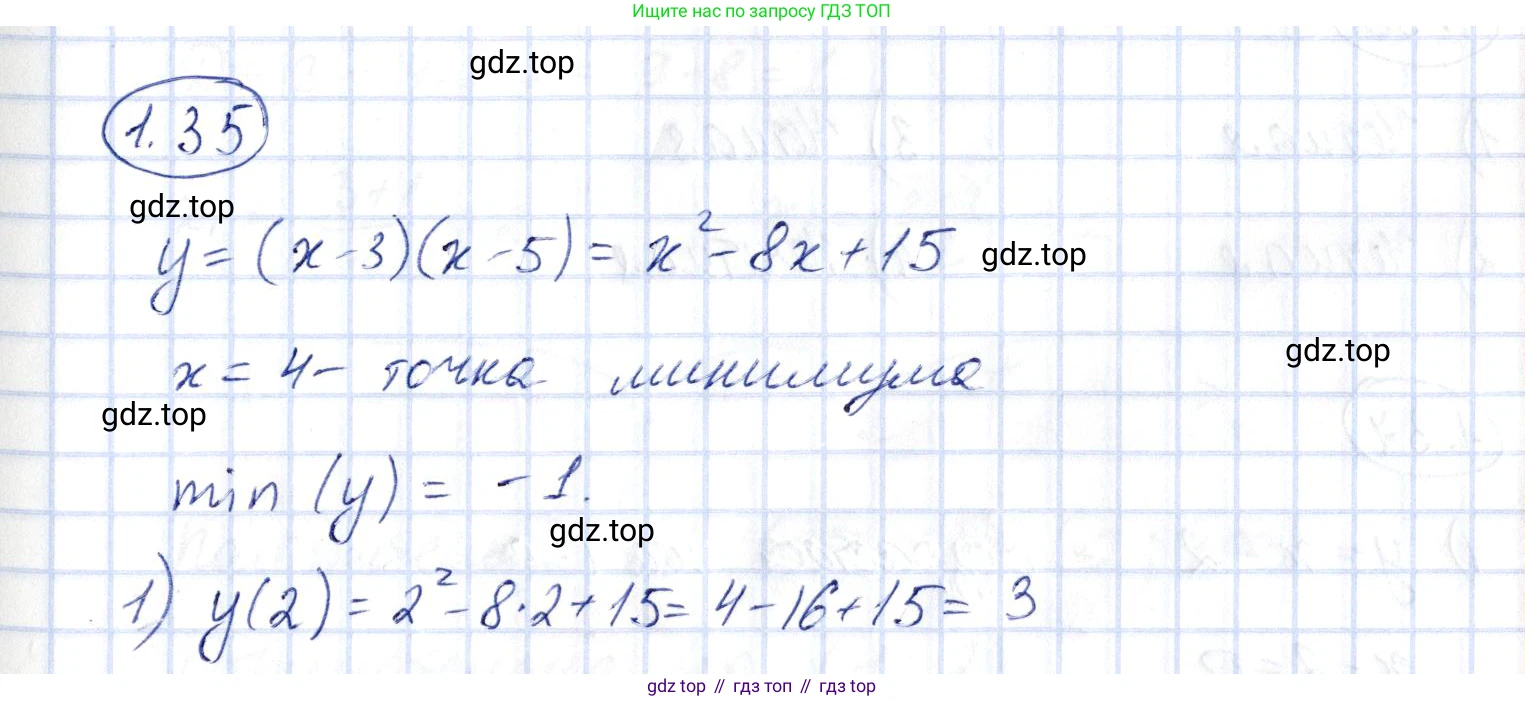 Ищите нас по запросу ГДЗ ТОП
gdz.top
1.35
gdz.top
y = (x - 3)(x - 5) = x² - 8x + 15
gdz.top
gdz.top
x = 4 - точка минимума
gdz.top
min (y) = - 1.
gdz.top
1) y(2) = 2² - 8 · 2 + 15 = 4 - 16 + 15 = 3
gdz top // гдз топ // гдз top